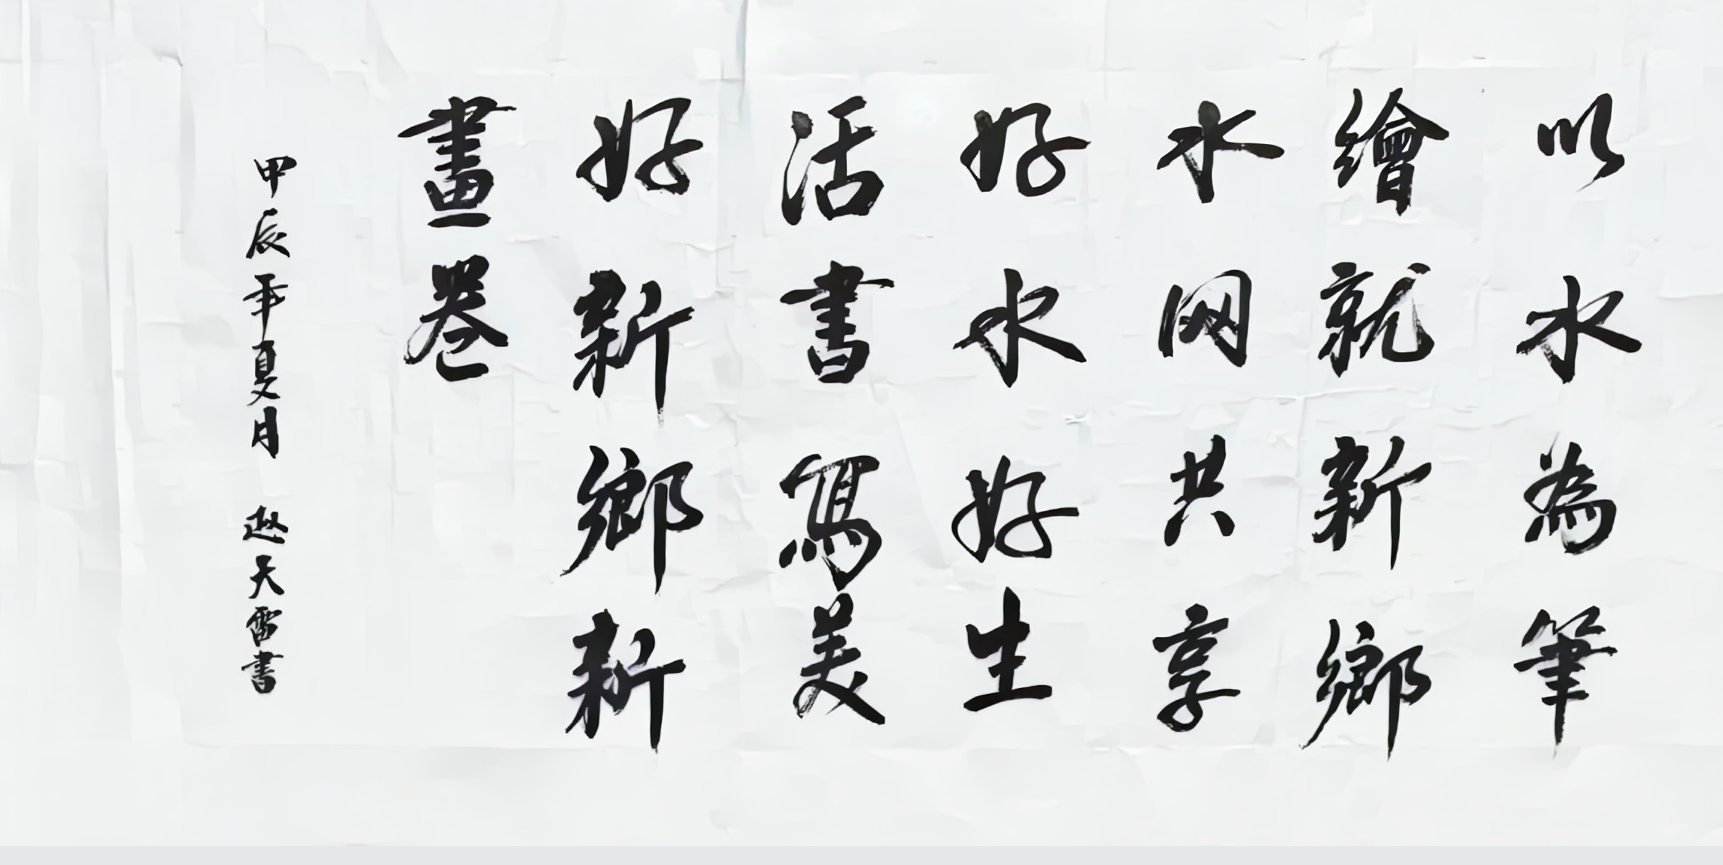 以水為筆
繪就新鄉
水网共享
好水好生
活書寫美
好新鄉新
畫卷
甲辰年夏月 天雷書